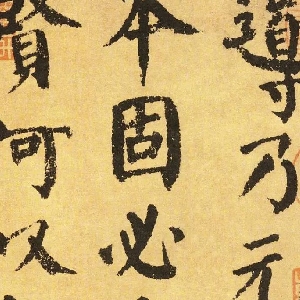 導乃元
本固必
賢可以